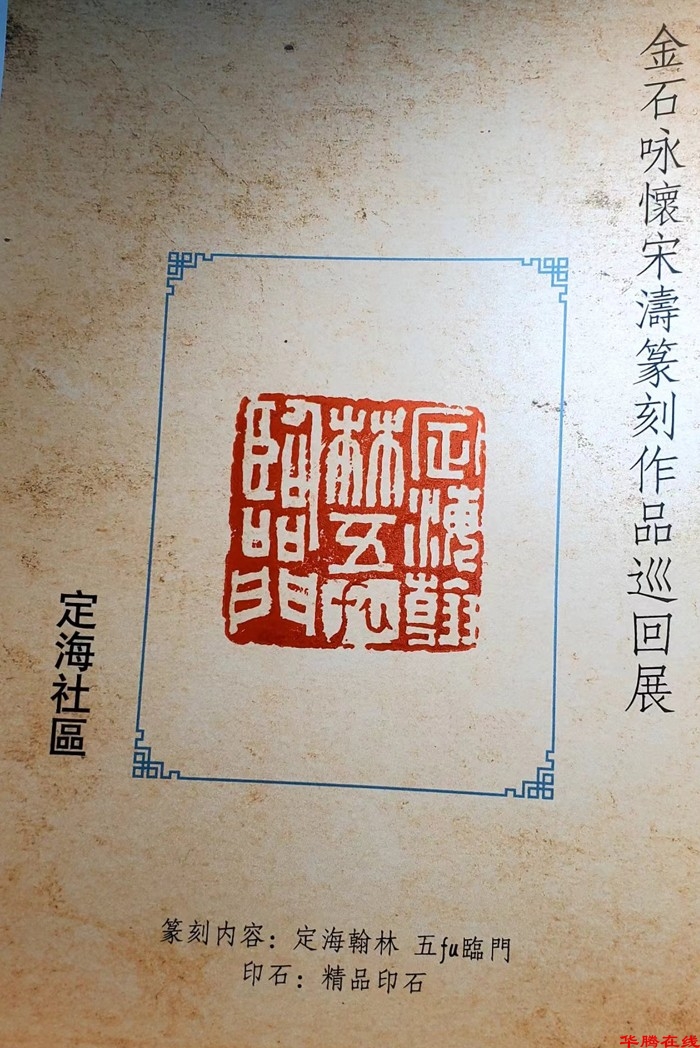 金石咏懷宋濤篆刻作品巡回展
定海翰
林五
臨門
定海社區
篆刻内容：定海翰林 五fu臨門
印石：精品印石
华腾在线